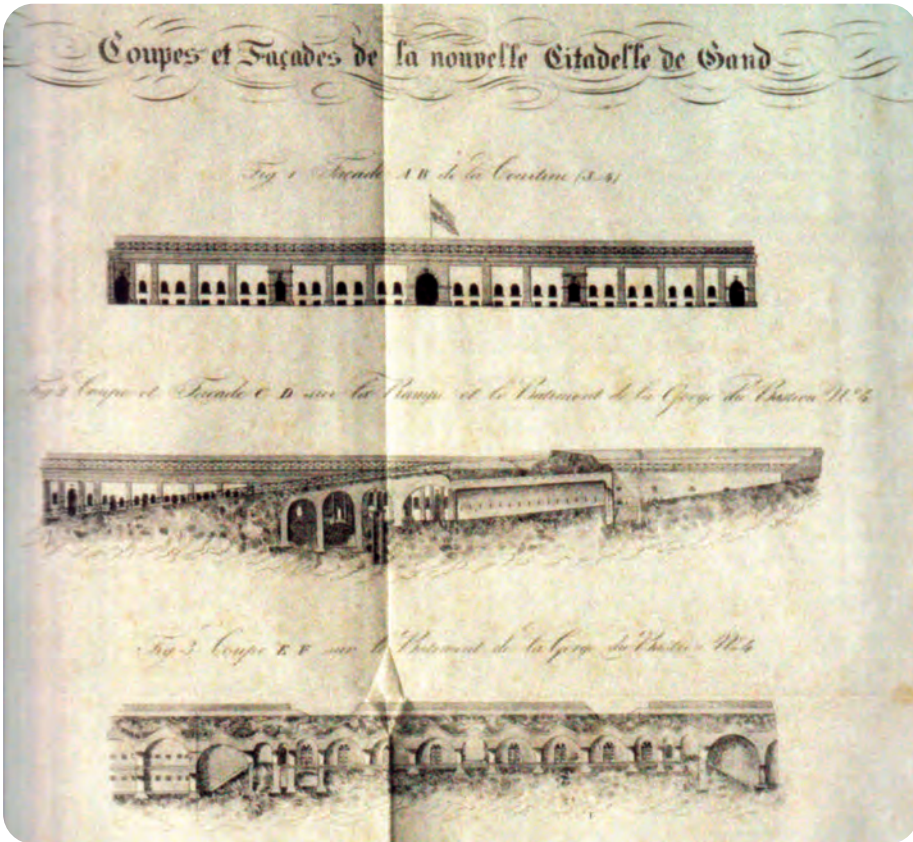 Coupes et Façades de la nouvelle Citadelle de Gand
Fig 1 Facade A B de la Courtine (3.4)
Fig 2 Coupe et Facade C D sur la Rampe et le Batiment de la Gorge du Bastion N.º 4
Fig 3 Coupe E F sur le Batiment de la Gorge du Bastion N.º 4